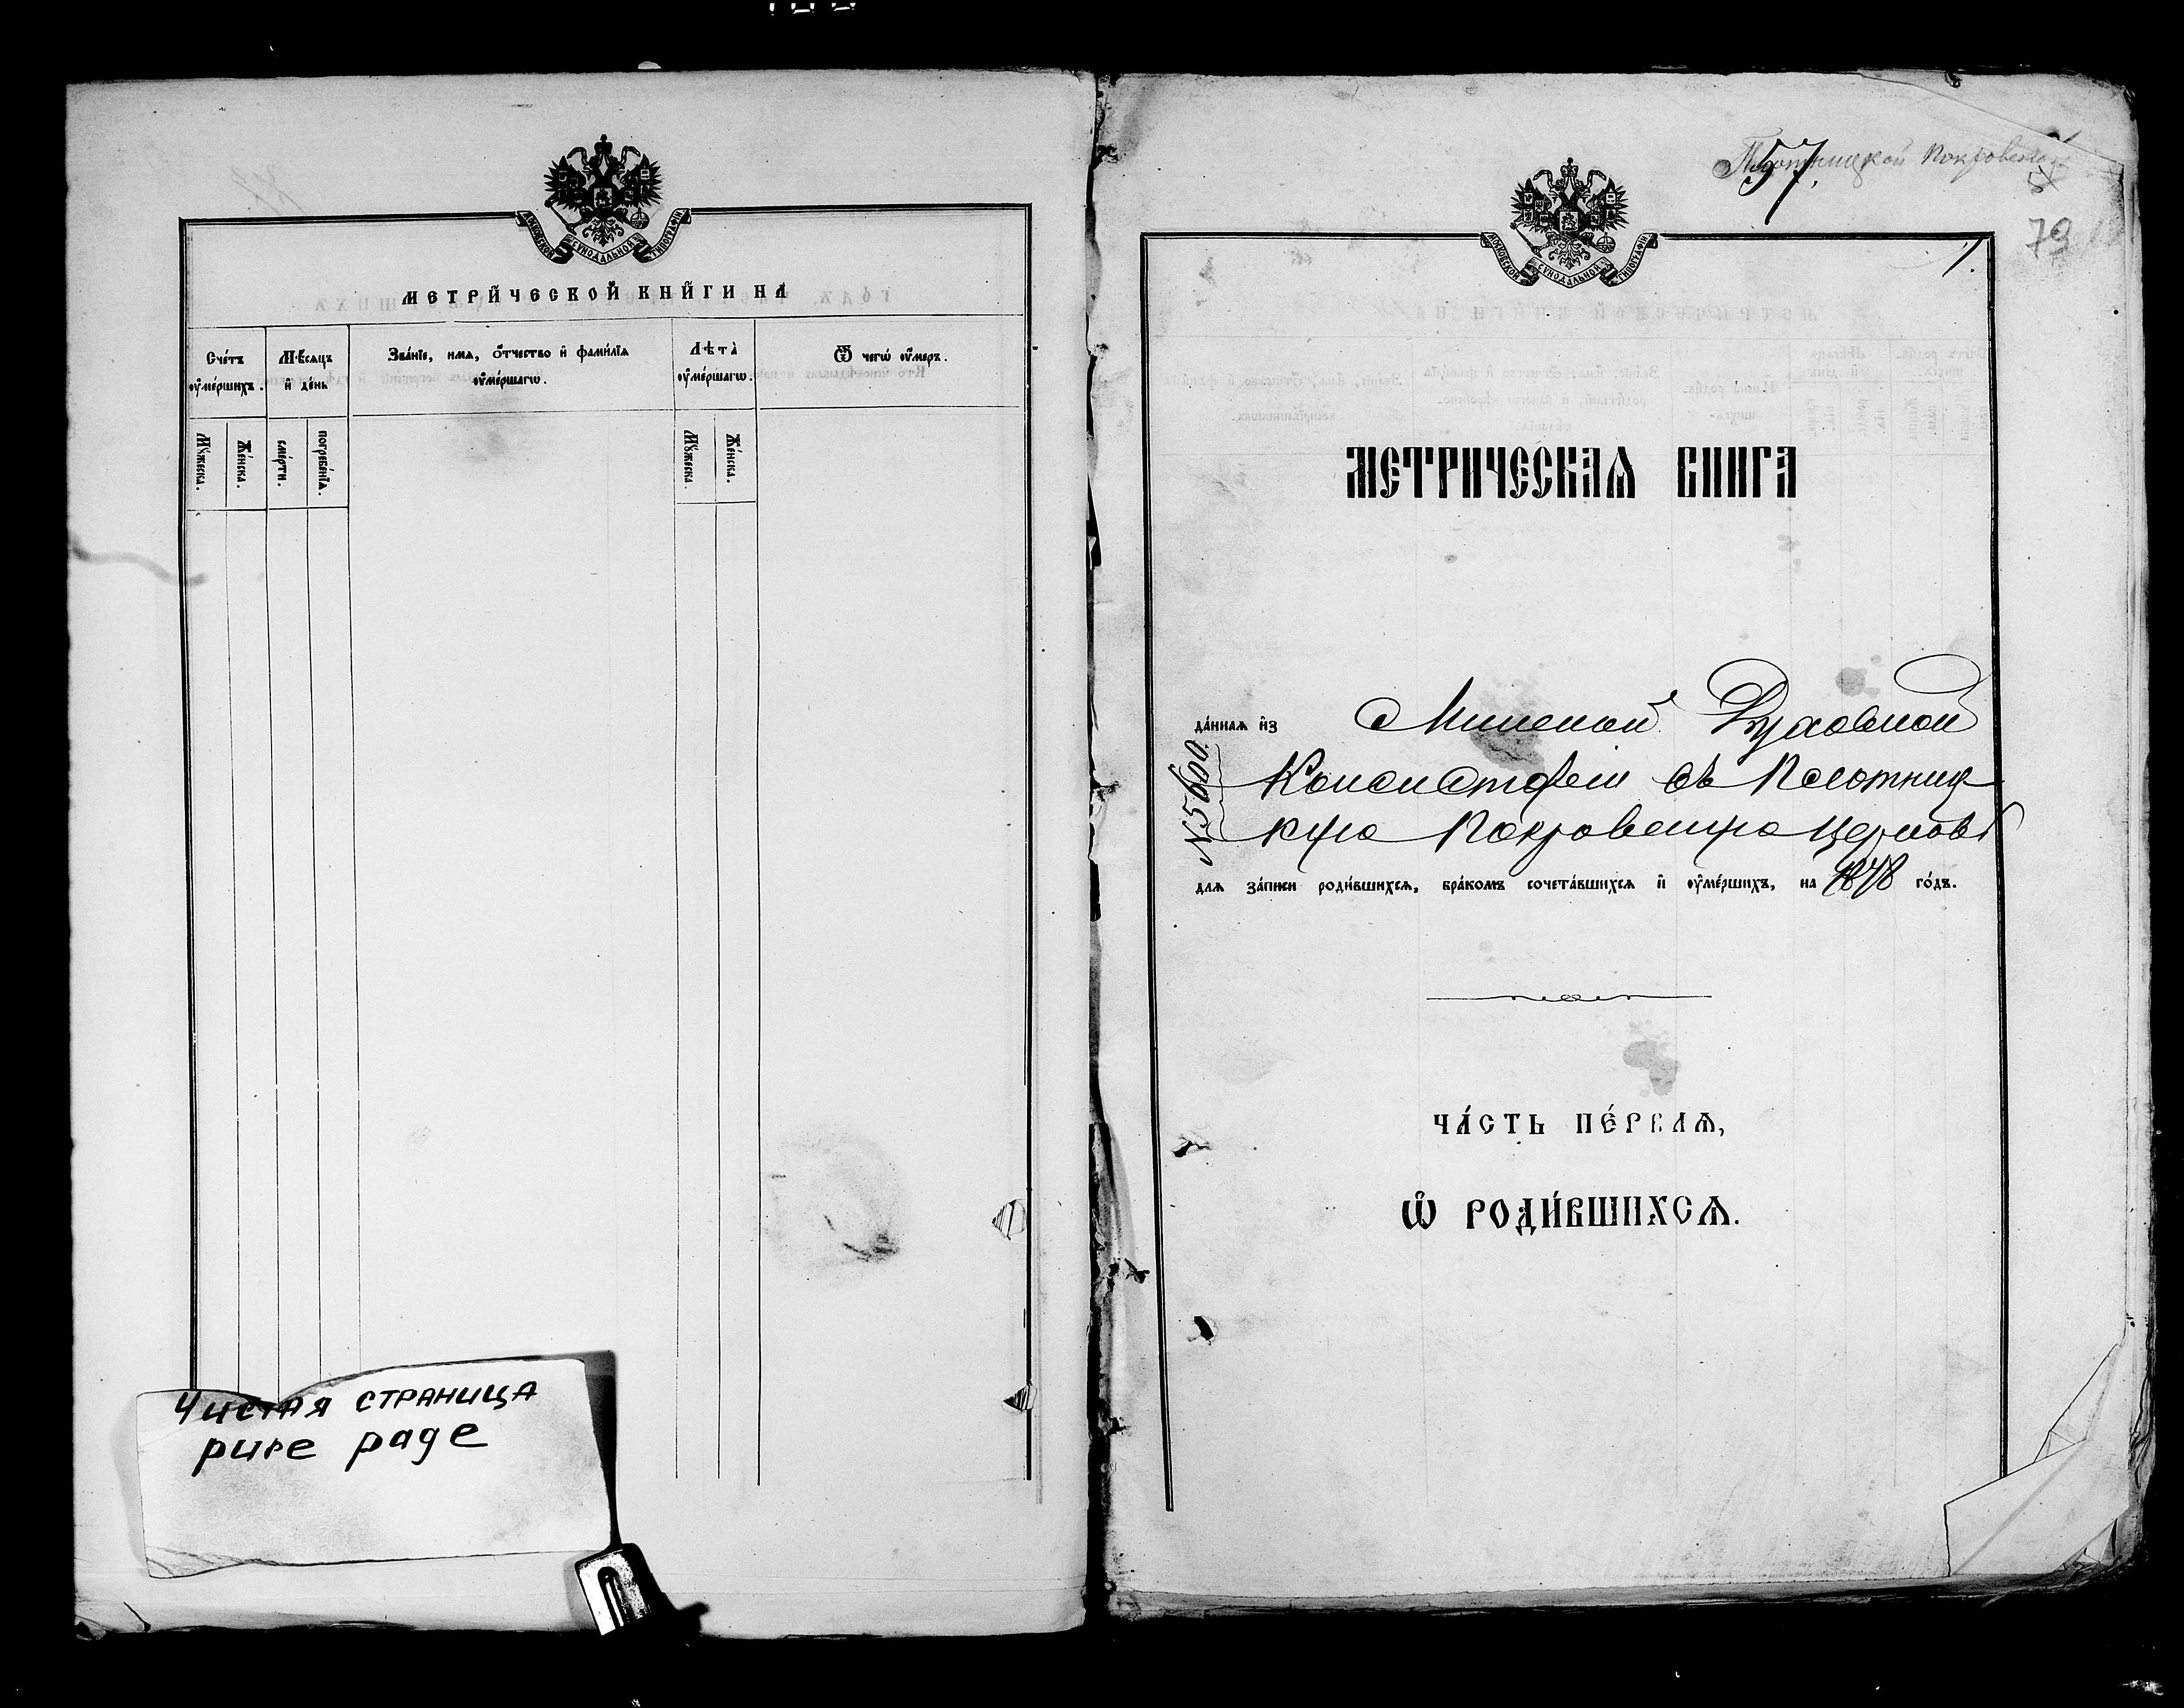 МОСКОВСКОЙ СѴНОДАЛЬНОЙ ТИПОГРАФІИ
МЕТРИ́ЧЕСКОЙ КНИ́ГИ НА
Сче́тъ ᲂу҆ме́ршихъ.
Мѣ́сяцъ и҆ де́нь
Зва́нїе, имѧ, ѻ҆́тчество и҆ фами́лїѧ ᲂу҆ме́ршагѡ.
Лѣта̀ ᲂу҆ме́ршагѡ.
Ѿ чегѡ̀ ᲂу҆́меръ.
Мꙋ́жеска.
Же́нска.
сме́рти.
погребе́нїѧ.
Мꙋ́жеска.
Же́нска.
Чистая страница
pure page
Плотницкой Покровской
57.
79
1.
МОСКОВСКОЙ СѴНОДАЛЬНОЙ ТИПОГРАФІИ
МЕТРИЧЕСКАѦ КНИГА
да́ннаѧ и҆з Минской Духовной
Консисторіи въ Плотниц
кую Покровскую церковь
№ 5600.
длѧ за́писи роди́вшихсѧ, бра́комъ сочета́вшихсѧ и҆ ᲂу҆ме́ршихъ, на 1878 го́дъ.
ЧА́СТЬ ПЕ́РВАѦ,
Ѡ҆ РОДИ́ВШИХСѦ.